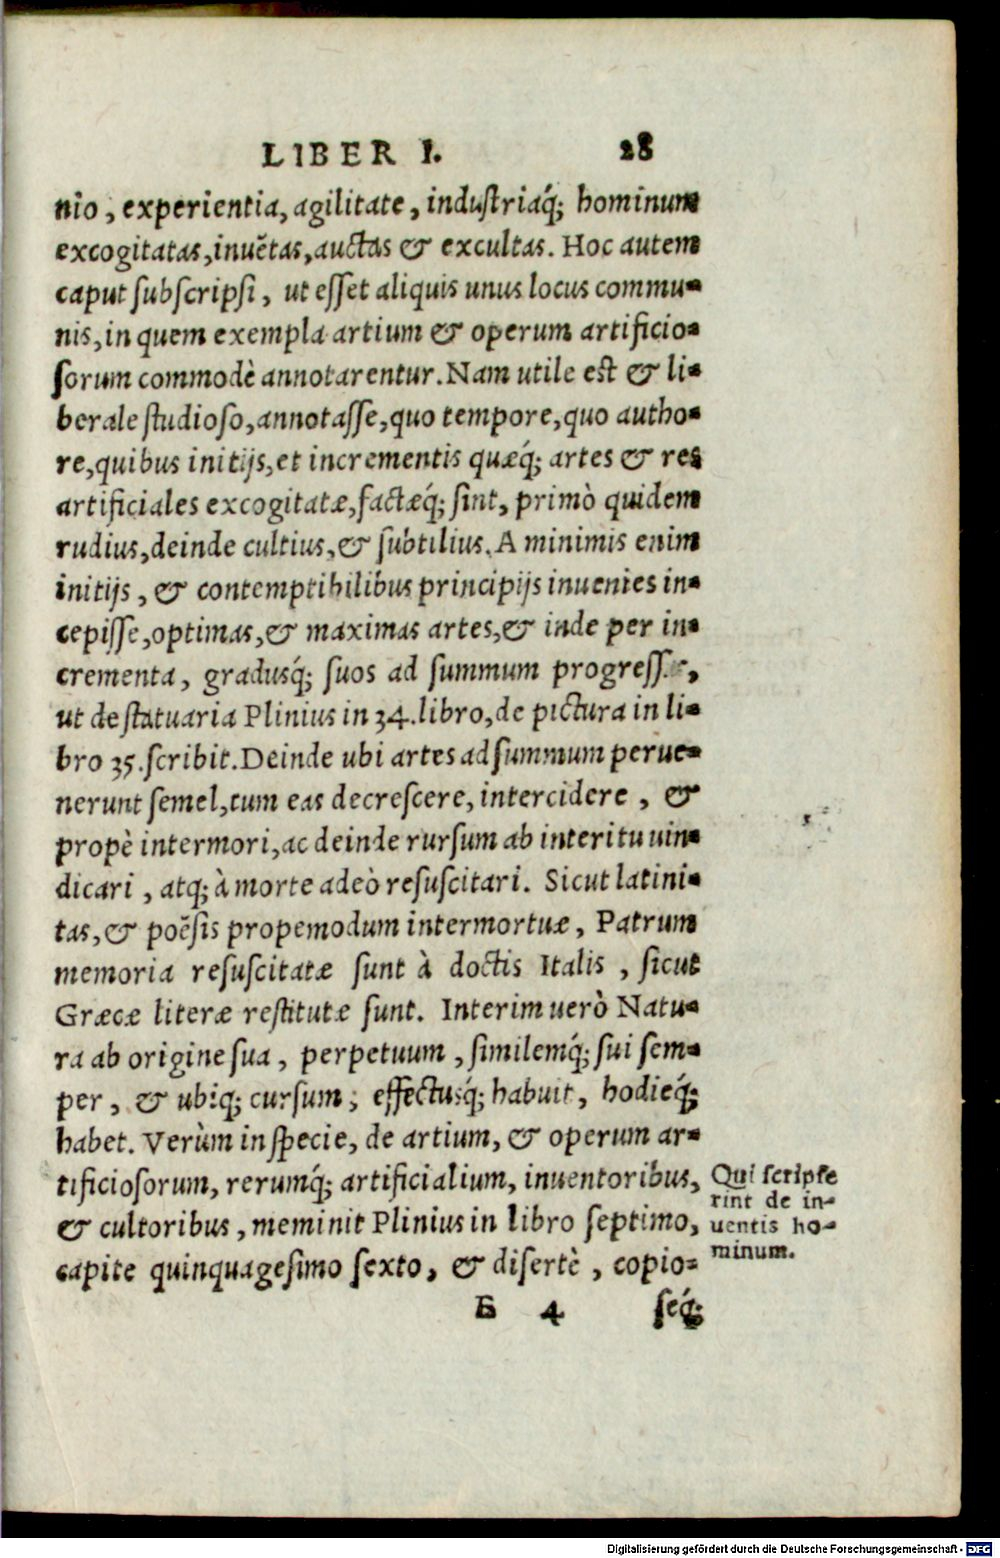 LIBER I. 28
nio, experientia, agilitate, induſtriaq́; hominum
excogitatas, inuẽtas, auctas & excultas. Hoc autem
caput ſubſcripſi, ut eſſet aliquis unus locus commu-
nis, in quem exempla artium & operum artificio-
ſorum commodè annotarentur. Nam utile est & li-
berale ſtudioſo, annotaſſe, quo tempore, quo autho-
re, quibus initijs, et incrementis quæq́; artes & res
artificiales excogitatæ, factæq́; ſint, primò quidem
rudius, deinde cultius, & ſubtilius. A minimis enim
initijs, & contemptibilibus principijs inuenies in-
cepiſſe, optimas, & maximas artes, & inde per in-
crementa, gradusq́; ſuos ad ſummum
ut de ſtatuaria Plinius in 34. libro, de pictura in li-
bro 35. ſcribit. Deinde ubi artes ad ſummum perue-
nerunt ſemel, tum eas decreſcere, intercidere, &
propè intermori, ac deinde rurſum ab interitu uin-
dicari, atq; à morte adeò reſuſcitari. Sicut latini-
tas, & poẽſis propemodum intermortuæ, Patrum
memoria reſuſcitatæ ſunt à doctis Italis, ſicut
Græcæ literæ reſtitutæ ſunt. Interim uerò Natu-
ra ab origine ſua, perpetuum, ſimilemq́; ſui ſem-
per, & ubiq; curſum, effectusq́; habuit, hodieq́;
habet. Verùm in ſpecie, de artium, & operum ar-
tificioſorum, rerumq́; artificialium, inuentoribus,
& cultoribus, meminit Plinius in libro ſeptimo,
capite quinquageſimo ſexto, & diſertè, copio-
Qui ſcripſe
rint de in-
uentis ho-
minum.
E 4 ſeq́;
Digitalisierung gefördert durch die Deutsche Forschungsgemeinschaft - DFG